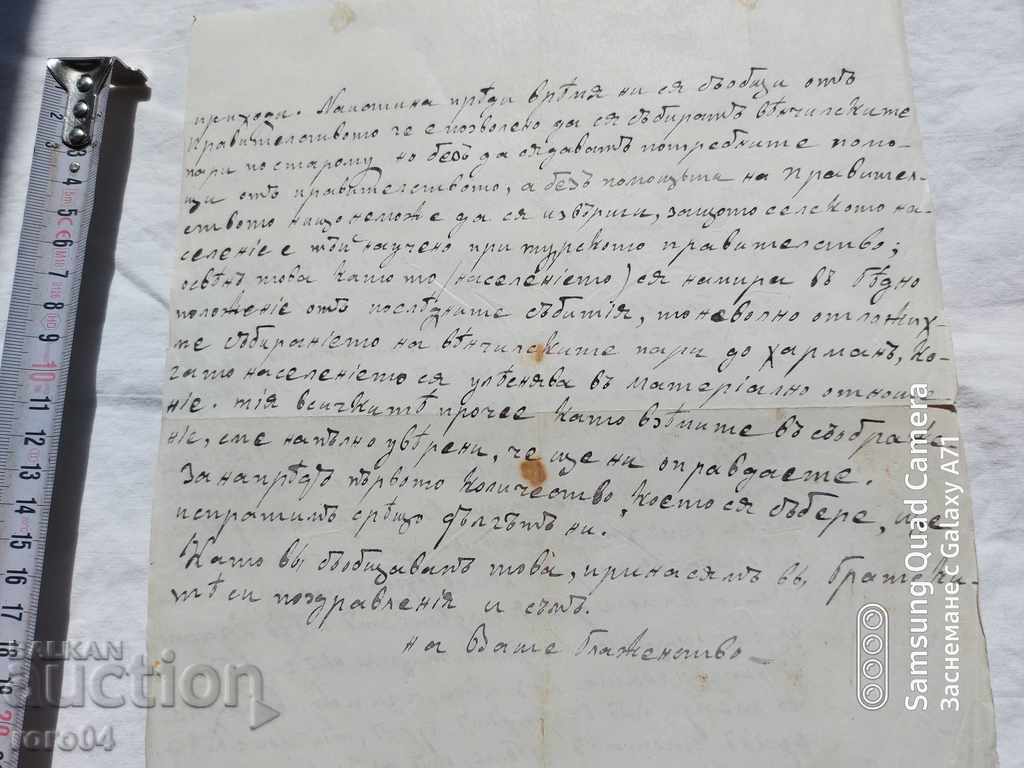 приходи. Наистина прѣди врѣмя ни ся съобщи отъ
Правителството че е позволено да ся събиратъ вѣнчилските
пари по старому но безъ да ся даватъ потребните помо-
щи отъ правителството, а безъ помощьта на Правител-
ството нищо неможе да ся извърши, защото селското на-
селение е тъй научено при турското правителство;
освѣнъ това като то (населението) ся намира въ бѣдно
положеніе отъ послѣдните събитія, то неволно отложих-
ме събираніето на вѣнчилските пари до харманъ, ко-
гато населеніето ся улѣснява въ матеріално отноше
ніе. Тія всичкитѣ прочее като вземите въ съображе
ніе, сме напълно увѣрени, че ще ни оправдаете.
За напрѣдъ първото количество, което ся събере, ще
испратимъ срѣщо дългътъ ни.
Като вы съобщаватъ това, принасямъ вы братски-
тѣ си поздравленія и съмъ.
на Ваше Блаженство
BALKAN
auction
toro04
Samsung Quad Camera
Заснеманес Galaxy A71
2
3
4
5
6
7
8
9
10
11
12
13
14
15
16
17
18
19
20